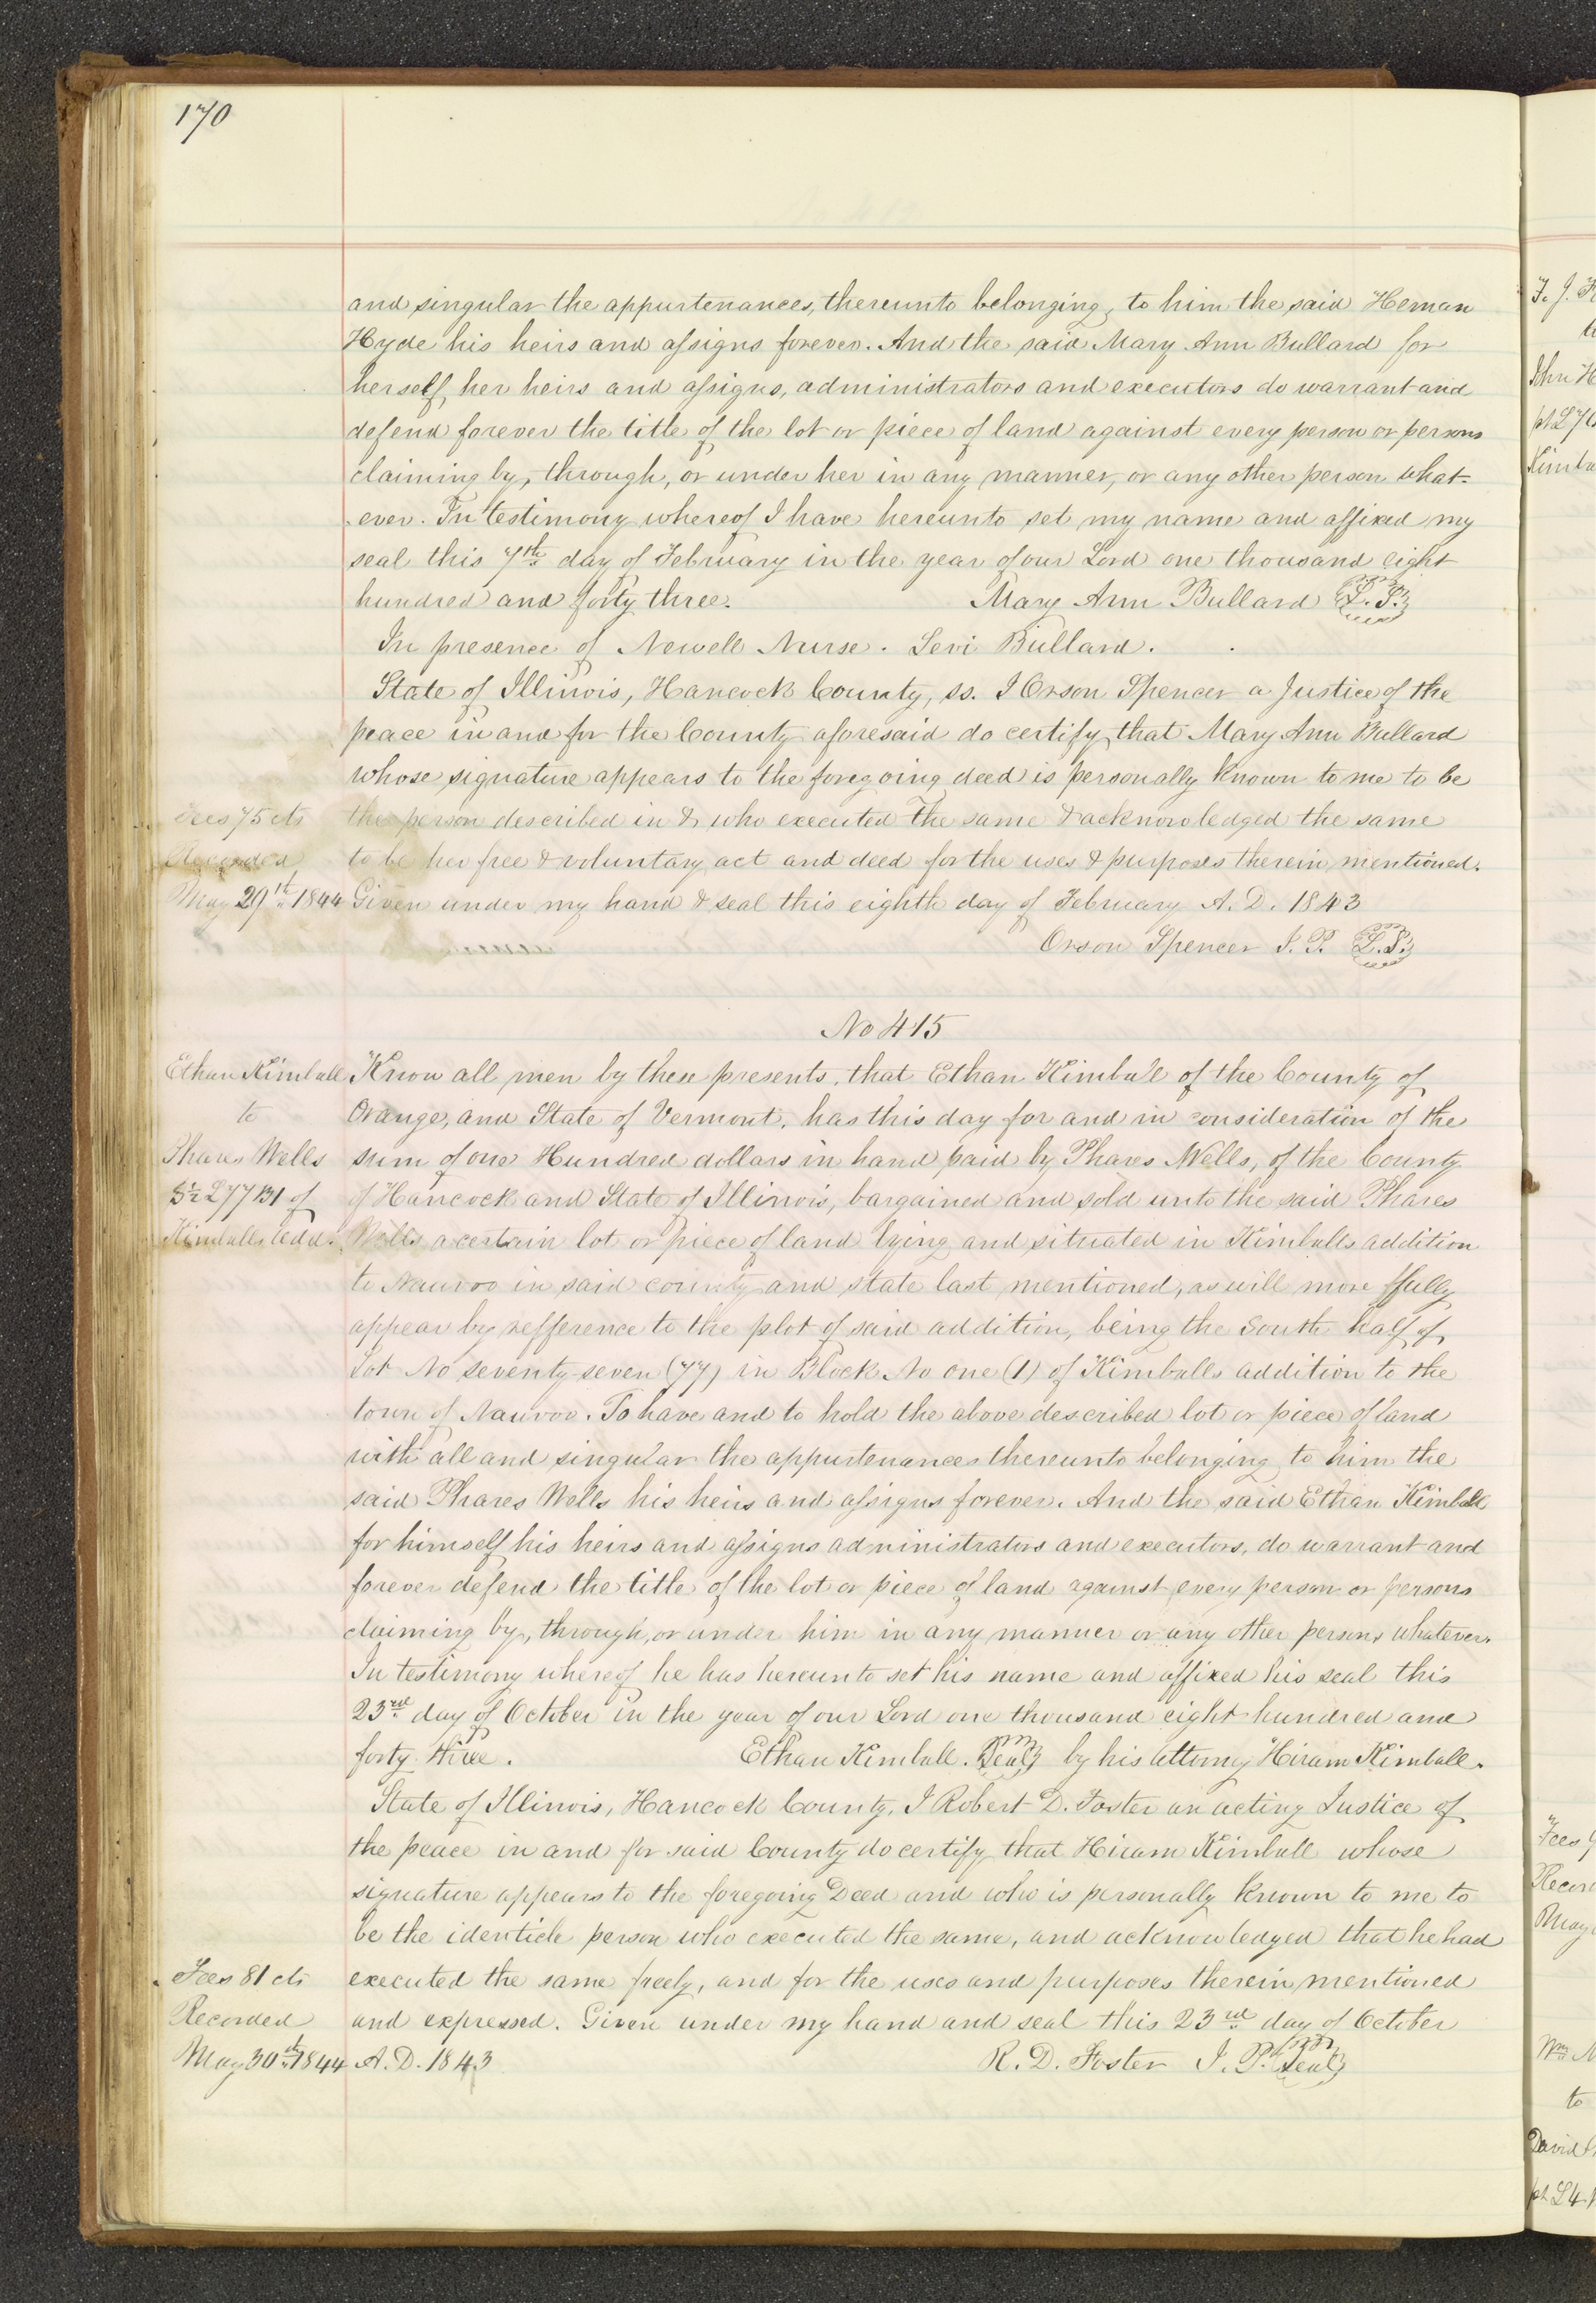 170
and singular the appurtenances, thereunto belonging, to him the said Heman
Hyde his heirs and assigns forever. And the said Mary Ann Bullard for
herself, her heirs and assigns, administrators and executors do warrant and
defend forever the title of the lot or piece of land against every person or persons
claiming by, through, or under her in any manner, or any other person what-
ever. In testimony whereof I have hereunto set my name and affixed my
seal this 7th day of February in the year of our Lord one thousand eight
hundred and forty three. Mary Ann Bullard L.S.
In presence of Newell Nurse. Levi Bullard.
State of Illinois, Hancock County, ss. I Orson Spencer a Justice of the
peace in and for the County aforesaid do certify, that Mary Ann Bullard
whose signature appears to the foregoing deed is personally known to me to be
Fees 75 cts the person described in & who executed the same & acknowledged the same
Recorded to be her free & voluntary act and deed for the uses & purposes therein mentioned.
May 29th 1844 Given under my hand & seal this eighth day of February A.D. 1843
Orson Spencer J.P. L.S.
No 415
Ethan Kimball Know all men by these presents, that Ethan Kimball of the County of
to Orange, and State of Vermont, has this day for and in consideration of the
Phares Wells sum of one Hundred dollars in hand paid by Phares Wells, of the County
S½ L77 B1 of of Hancock and State of Illinois, bargained and sold unto the said Phares
Kimballs Add. Wells a certain lot or piece of land lying and situated in Kimballs addition
to Nauvoo in said county and state last mentioned, as will more ffully
appear by refference to the plot of said addition, being the South half of
Lot No seventy-seven (77) in Block No one (1) of Kimballs addition to the
town of Nauvoo. To have and to hold the above described lot or piece of land
with all and singular the appurtenances thereunto belonging to him the
said Phares Wells his heirs and assigns forever. And the said Ethan Kimball
for himself his heirs and assigns administrators and executors, do warrant and
forever defend the title of the lot or piece of land against every person or persons
claiming by, through, or under him in any manner or any other persons whatever.
In testimony whereof he has hereunto set his name and affixed his seal this
23rd day of October in the year of our Lord one thousand eight hundred and
forty three. Ethan Kimball. Seal by his attorny Hiram Kimball.
State of Illinois, Hancock County, I Robert D. Foster an acting Justice of
the peace in and for said County do certify that Hiram Kimball whose
signature appears to the foregoing Deed and who is personally known to me to
be the identicle person who executed the same, and acknowledged that he had
Fees 81 cts executed the same freely, and for the uses and purposes therein mentioned
Recorded and expressed. Given under my hand and seal this 23rd day of October
May 30th 1844 A.D. 1843 R. D. Foster J. P. Seal
John H
Kimba
Fees
Recor
May
Wm
to
David
pt L4